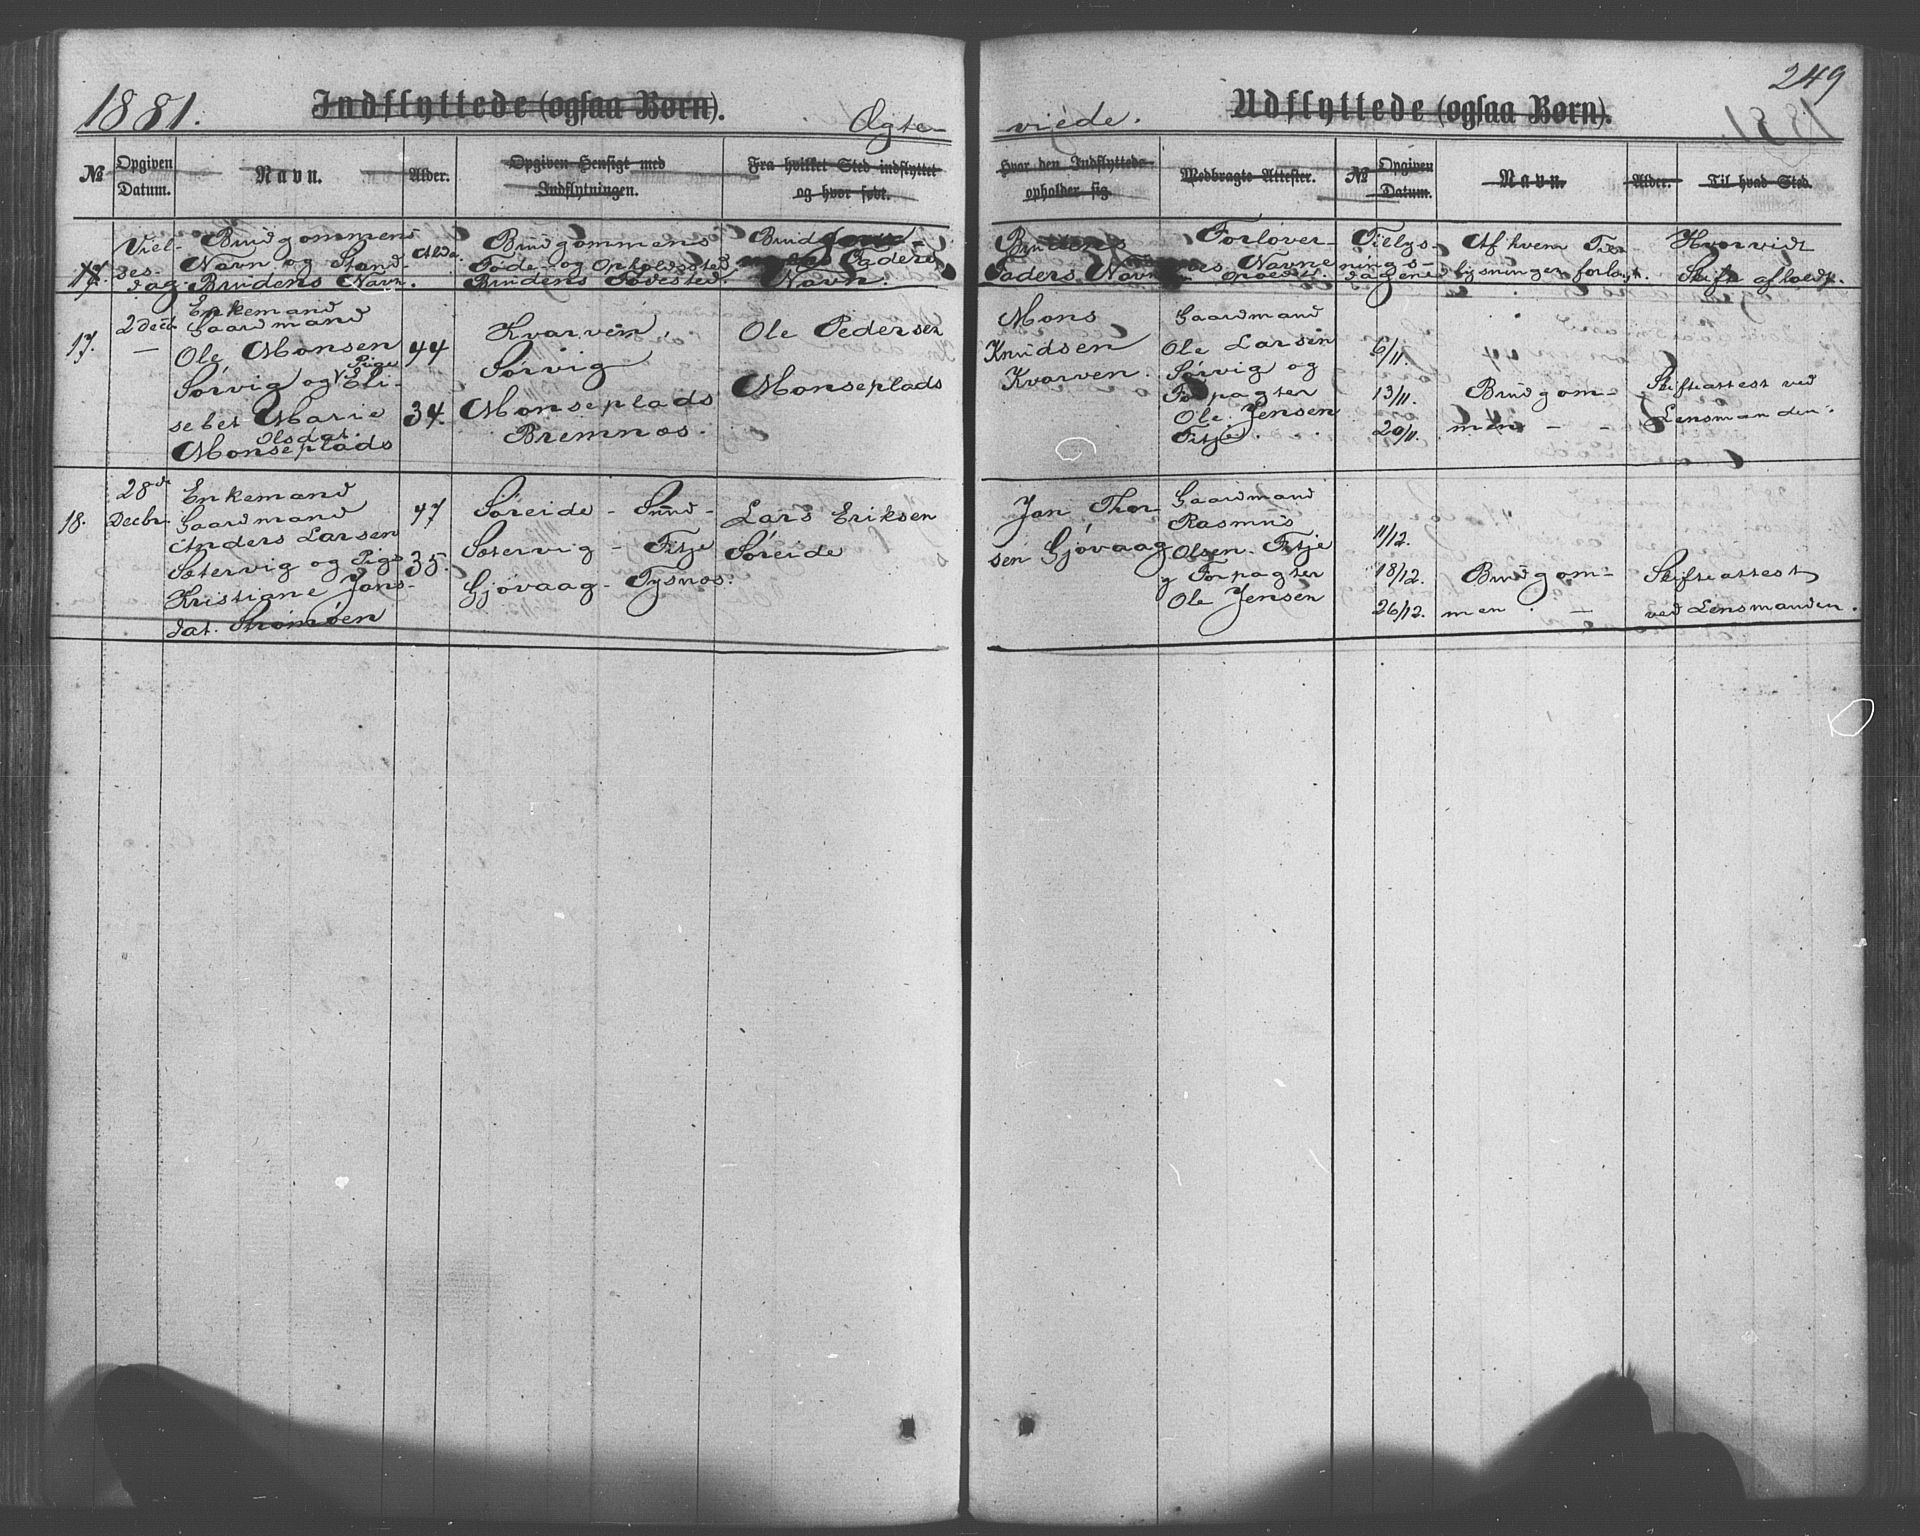 1881.
Indflyttede (ogsaa Børn).
Ægte
No
Opgiven
Datum.
Navn.
Alder.
Opgiven Hensigt med
Indflytningen.
Fra hvilket Sted indflyttet
og hvor født.
Viel-
ses-
dag.
Brudgommens
Navn og Stand
Brudens Navn.
Brudgommens
Føde- og Opholdssted
Brudens Fødested
Faders
Navn.
17.
2 Decb
Enkemand
Gaardmand
Ole Monsen
Sørvig og Pige
Eli-
sebet Marie
Olsdat.
Monseplads
44
34.
Kvarven,
Sørvig
Monseplads
Bremnæs.
Ole Pedersen
Monseplads
18.
28de
Decbr
Enkemand
Gaardmand
Anders Larsen
Sætervig og Pige
Kristiane Jans-
dat. Strømøen
47
35.
Søreide - Sund-
Sætervig - Fitje
Gjøvaag - Tysnæs.
Lars Eriksen
Søreide
249
viede.
Udflyttede (ogsaa Børn).
Hvor den Indflyttede
opholder sig.
Medbragte Attester.
No
Opgiven
Datum.
Navn.
Alder.
Til hvad Sted.
Brudens
Faders Navn
Forlover-
nes Navne
Tillys-
nings-
dagene
Af hvem Til-
lysningen forlangt.
Hvorvidt
Skift afholdt.
Mons
Knudsen
Kvarven.
Gaardmand
Ole Larsen
Sørvig og
Forpagter
Ole Jensen
Fitje.
6/11.
13/11.
20/11.
Brudgom-
men - -
Skifteattest ved
Lensmanden.
Jan Thor
sen Gjøvaag
Gaardmand
Rasmus
Olsen Fitje
Forpagter
Ole Jensen
11/12.
18/12.
26/12.
Brudgom-
men. -
Skifteattest
ved Lensmanden.